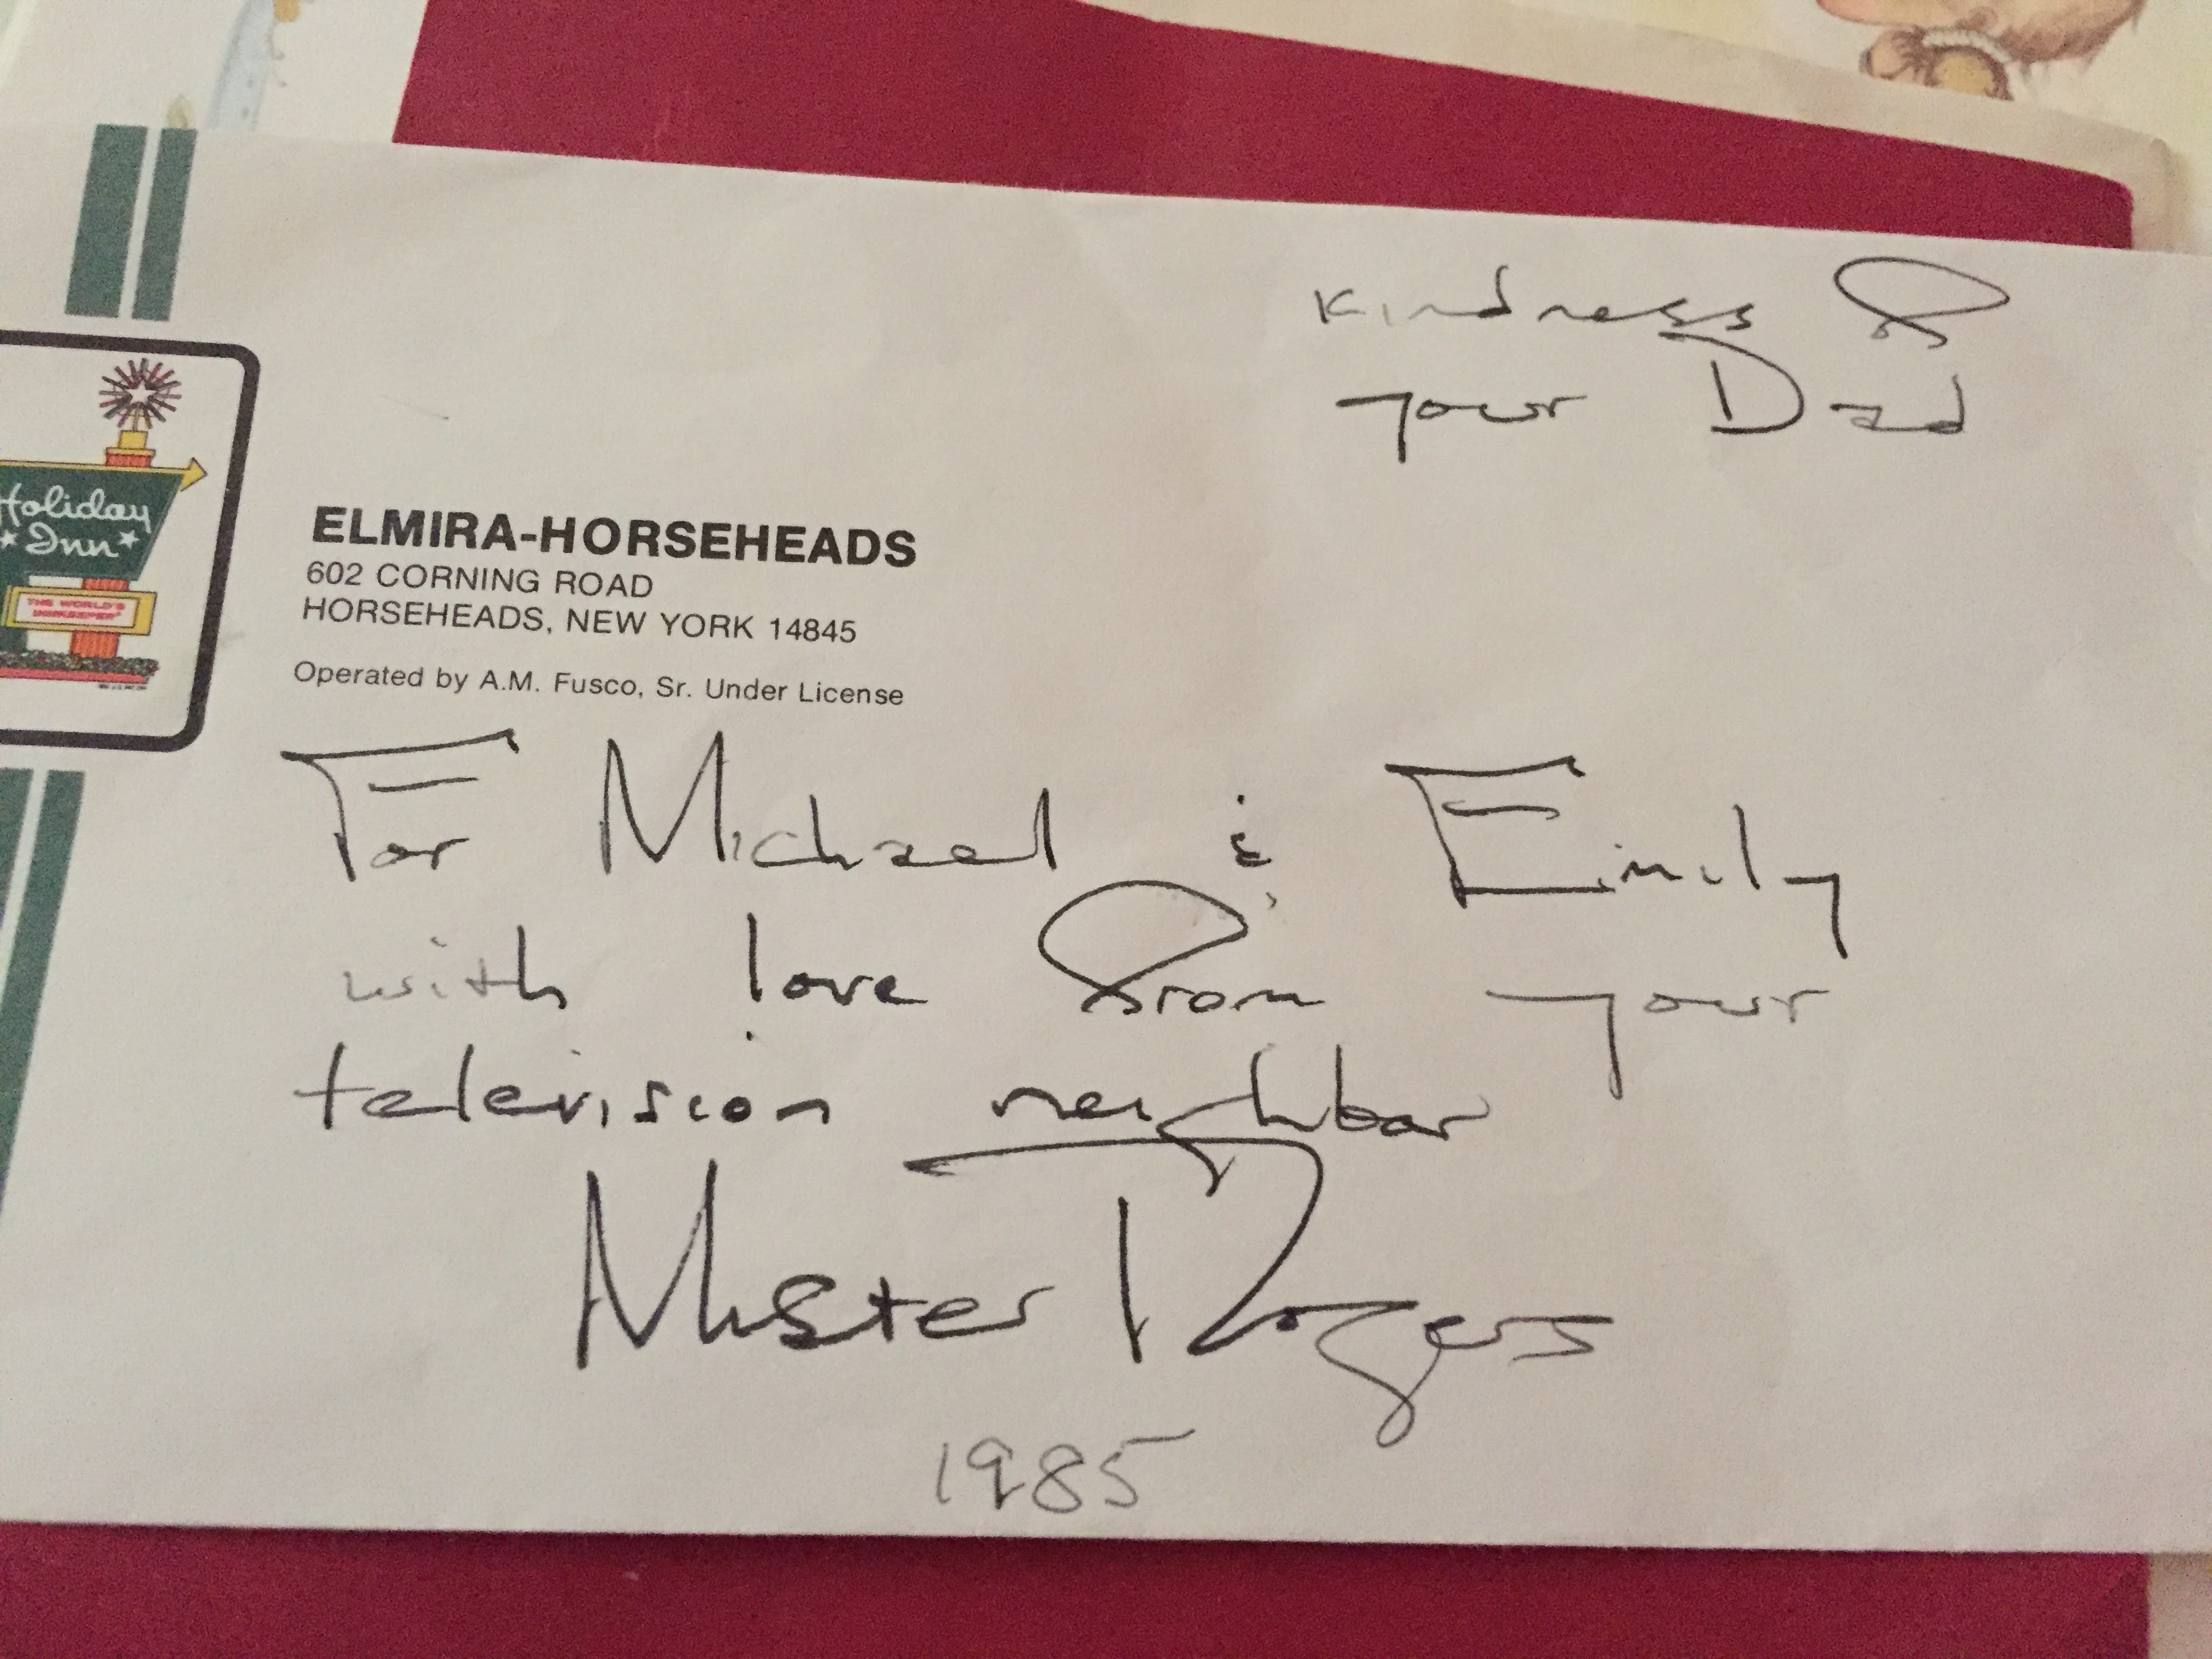 kindness of
your Dad
Holiday
Inn
THE WORLD'S
INNKEEPER
ELMIRA-HORSEHEADS
602 CORNING ROAD
HORSEHEADS, NEW YORK 14845
Operated by A.M. Fusco, Sr. Under License
For Michael & Emily
with love from your
television neighbor
Mister Rogers
1985